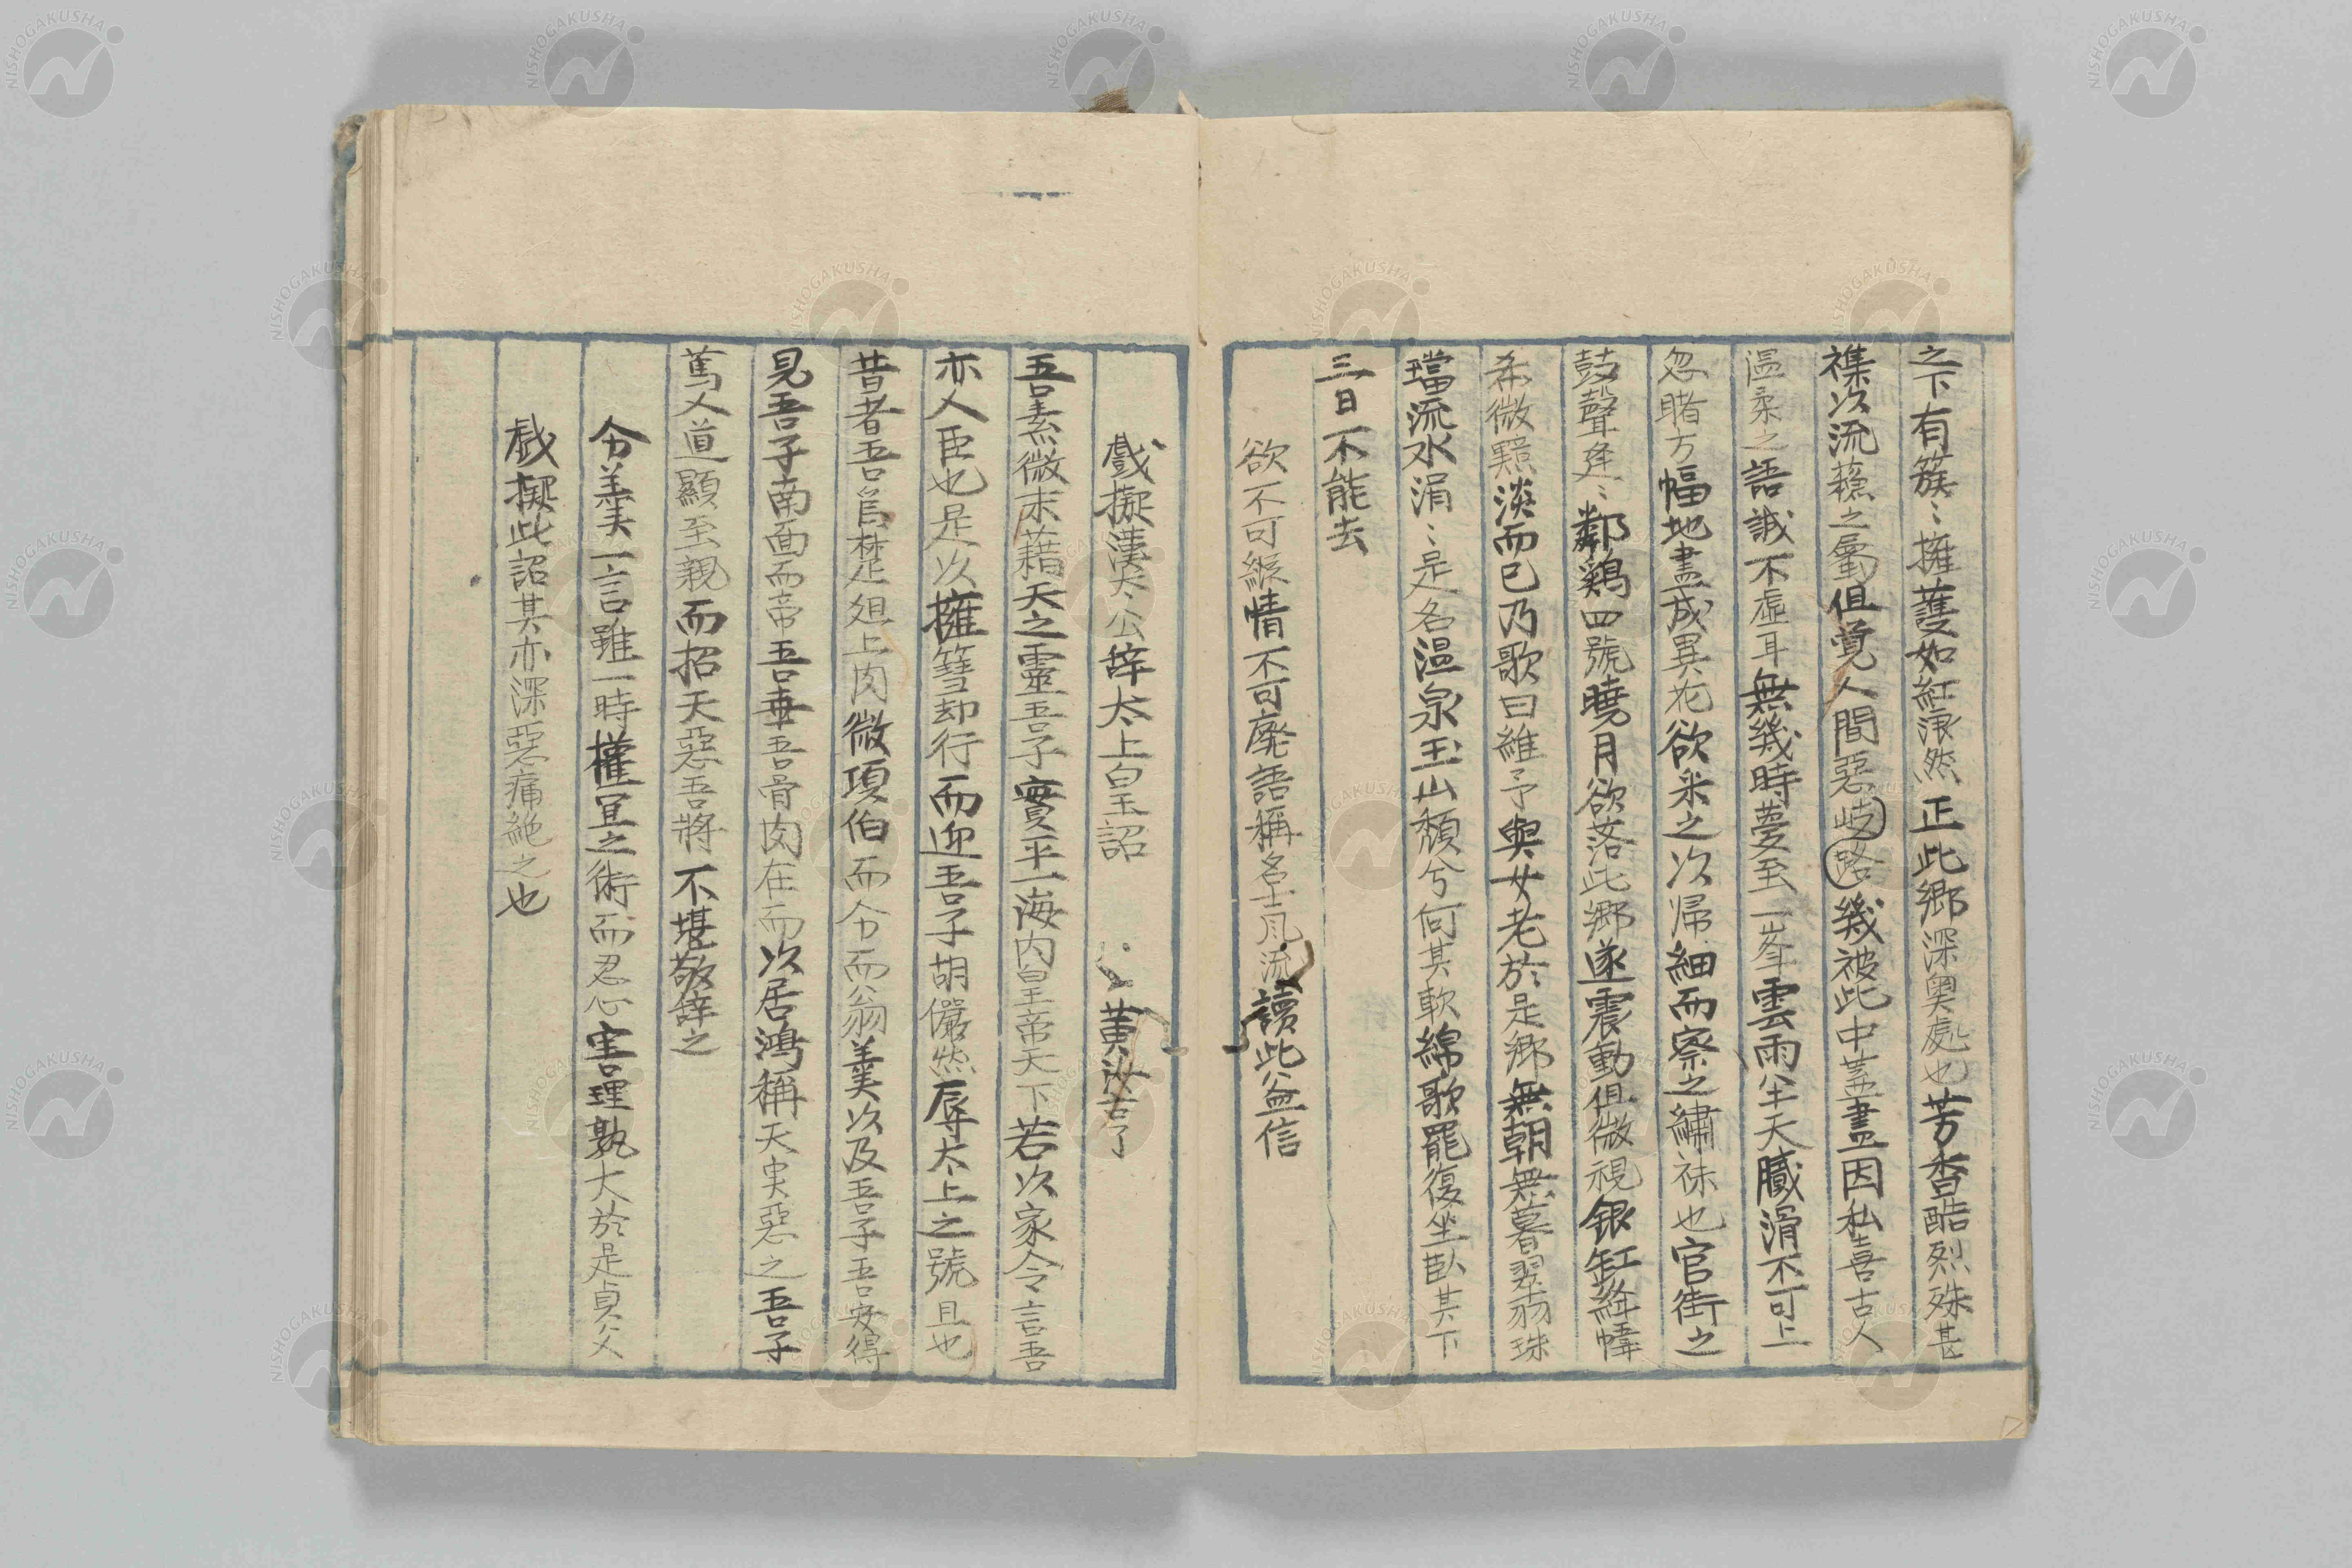 之下有簇〻擁護如紅浪然正此郷深奥處也芳香酷烈殊甚
襍以流蘓之屬但覚人間惡岐路幾被此中葢盡因私喜古人
温柔之語誠不虛耳無幾時夢至一峯雲雨半天膩滑不可上
忽睹方幅地盡成異花欲米之以帰細而察之繡袜也官街之
鼓聲逄〻鄰鷄四號曉月欲落此郷遂震動但微視銀缸絳幃
希微黯淡而已乃歌曰維予與女老於是郷無朝無暮翠翎珠
璫流水涓〻是名温泉玉山頽兮何其軟綿歌罷復坐臥其下
三日不能去
欲不可縱情不可廃語稱名士風流讀此益信
戲擬漢太公辞太上皇詔 黄汝吉了
吾素微末藉天之靈吾子實平一海内皇帝天下若以家令言吾
亦人臣也是以擁篲却行而迎吾子胡儼然辱太上之號且也
昔者吾爲楚俎上肉微項伯而令而翁羹以及吾子吾安得
見吾子南面而帝吾幸吾骨肉在而以居鴻稱天実惡之吾子
篤人道顯至親而招天惡吾將不堪敬辞之
分羹一言雖一時權宜之術而忍心害理孰大於是貞父
戯擬此詔其亦深惡痛絶之也
NISHOGAKUSHA